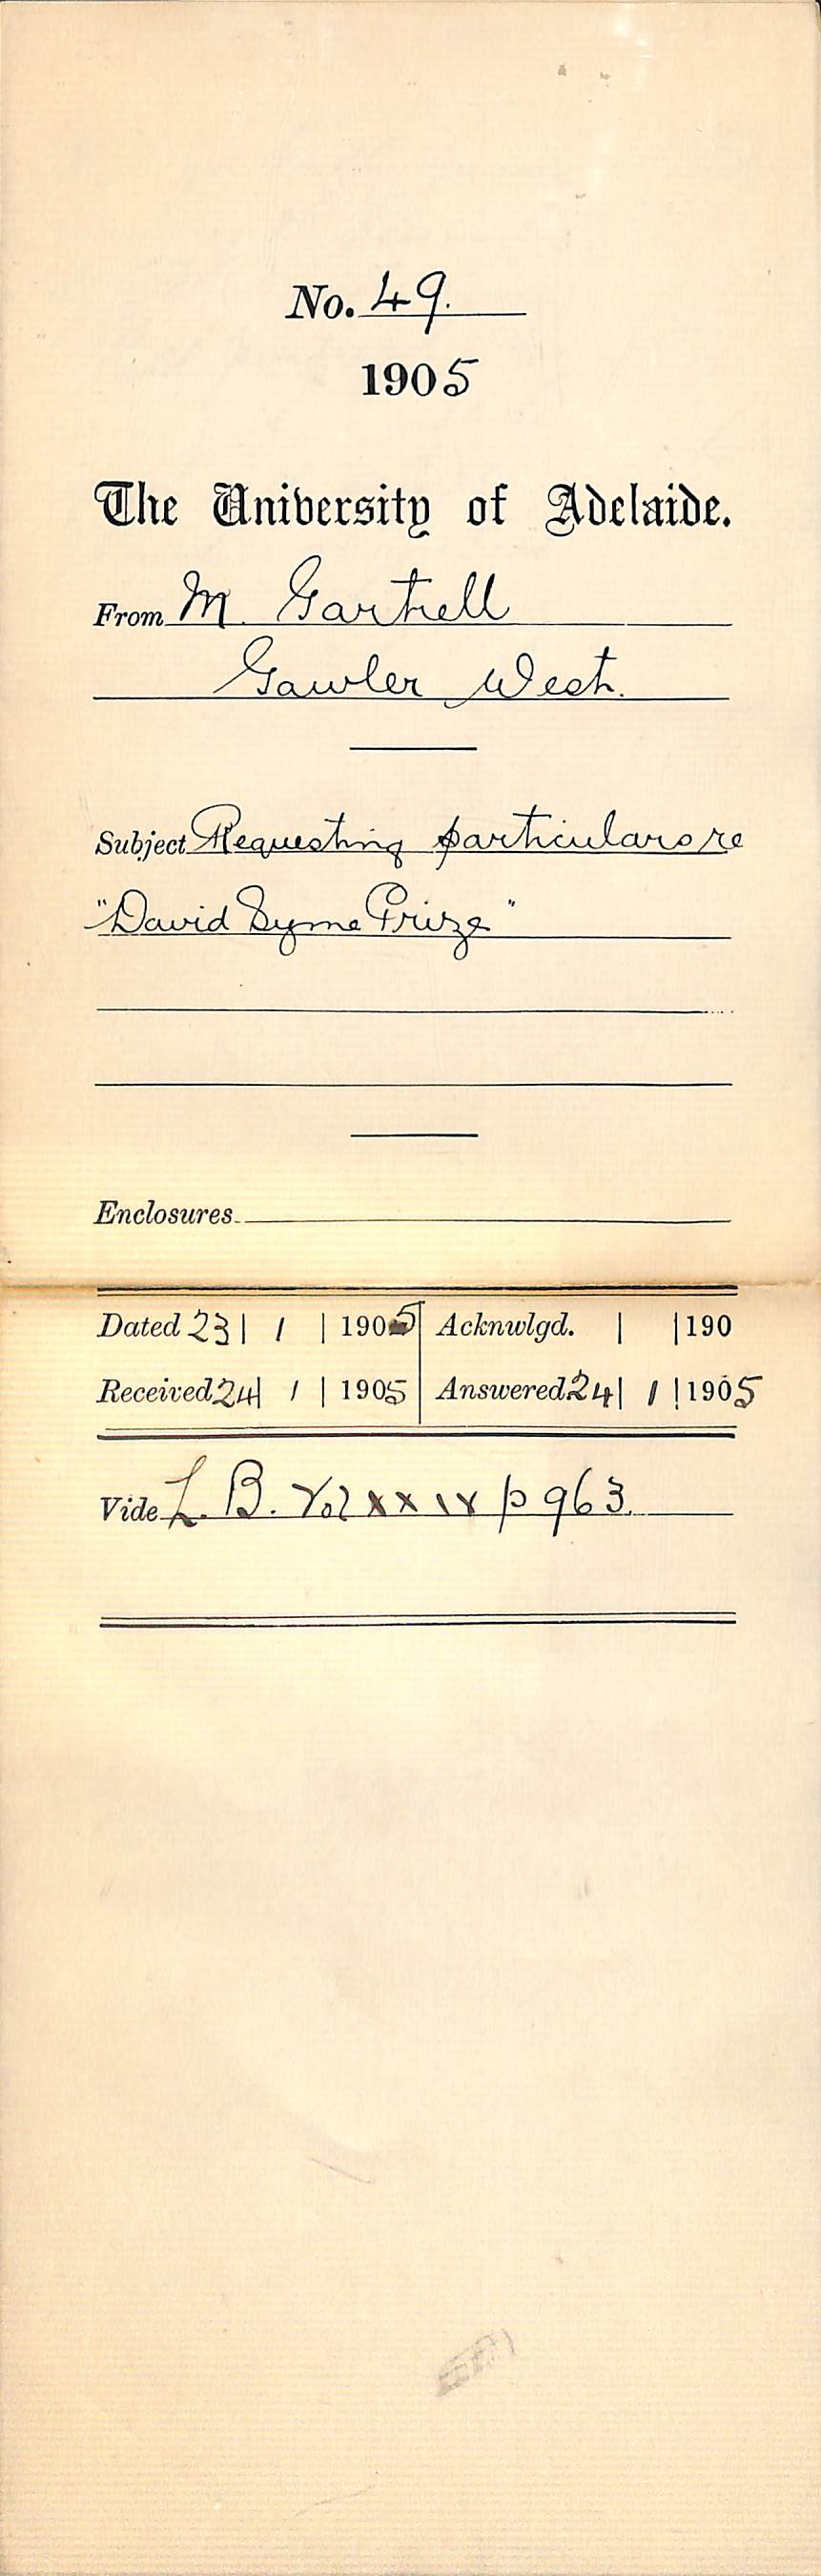 No. 49.
1905
The University of Adelaide.
From M. Gartrell
Gawler West.
Subject Requesting particulars re
"David Syme Prize"
Enclosures
Dated 23 | 1 | 1905 Acknwlgd. | | 190
Received 24 | 1 | 1905 Answered 24 | 1 | 1905
Vide L. B. Vol xx iv p 963.